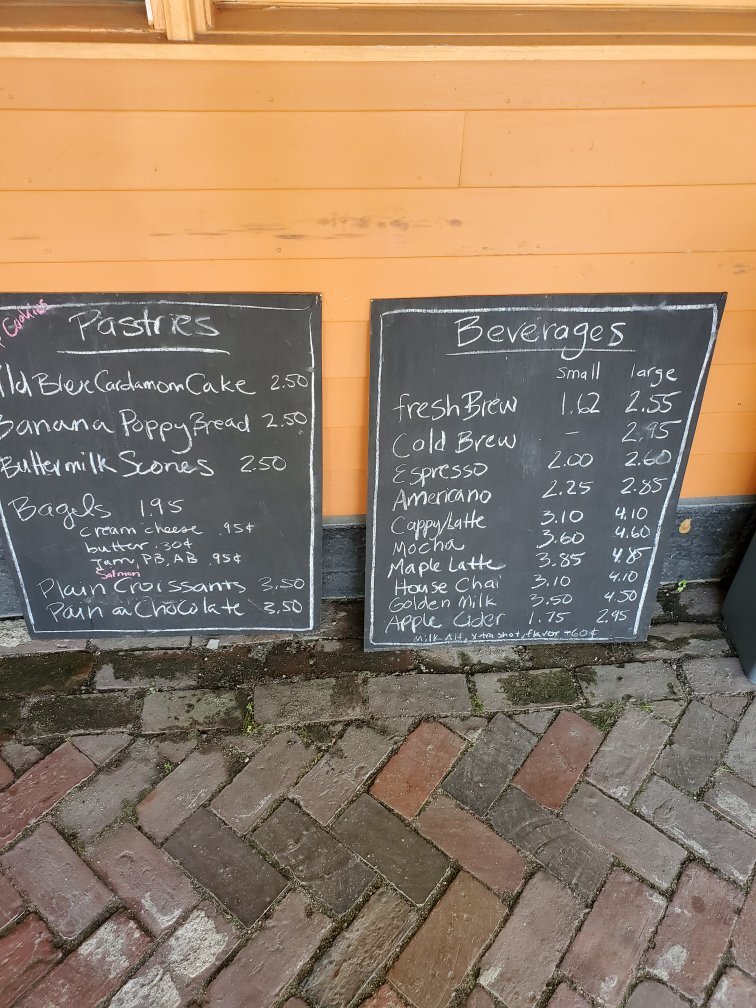 Cookies
Pastries
ild Blue Cardamom Cake 2.50
Banana Poppy Bread 2.50
Buttermilk Scones 2.50
Bagels 1.95
cream cheese .95¢
butter .30¢
Jam, PB, AB .95¢
Salmon
Plain Croissants 3.50
Pain au Chocolate 3.50
Beverages
small large
fresh Brew 1.62 2.55
Cold Brew - 2.95
Espresso 2.00 2.60
Americano 2.25 2.85
Cappy/Latte 3.10 4.10
Mocha 3.60 4.60
Maple Latte 3.85 4.85
House Chai 3.10 4.10
Golden Milk 3.50 4.50
Apple Cider 1.75 2.95
Milk-Alt, xtra shot, flavor +60¢